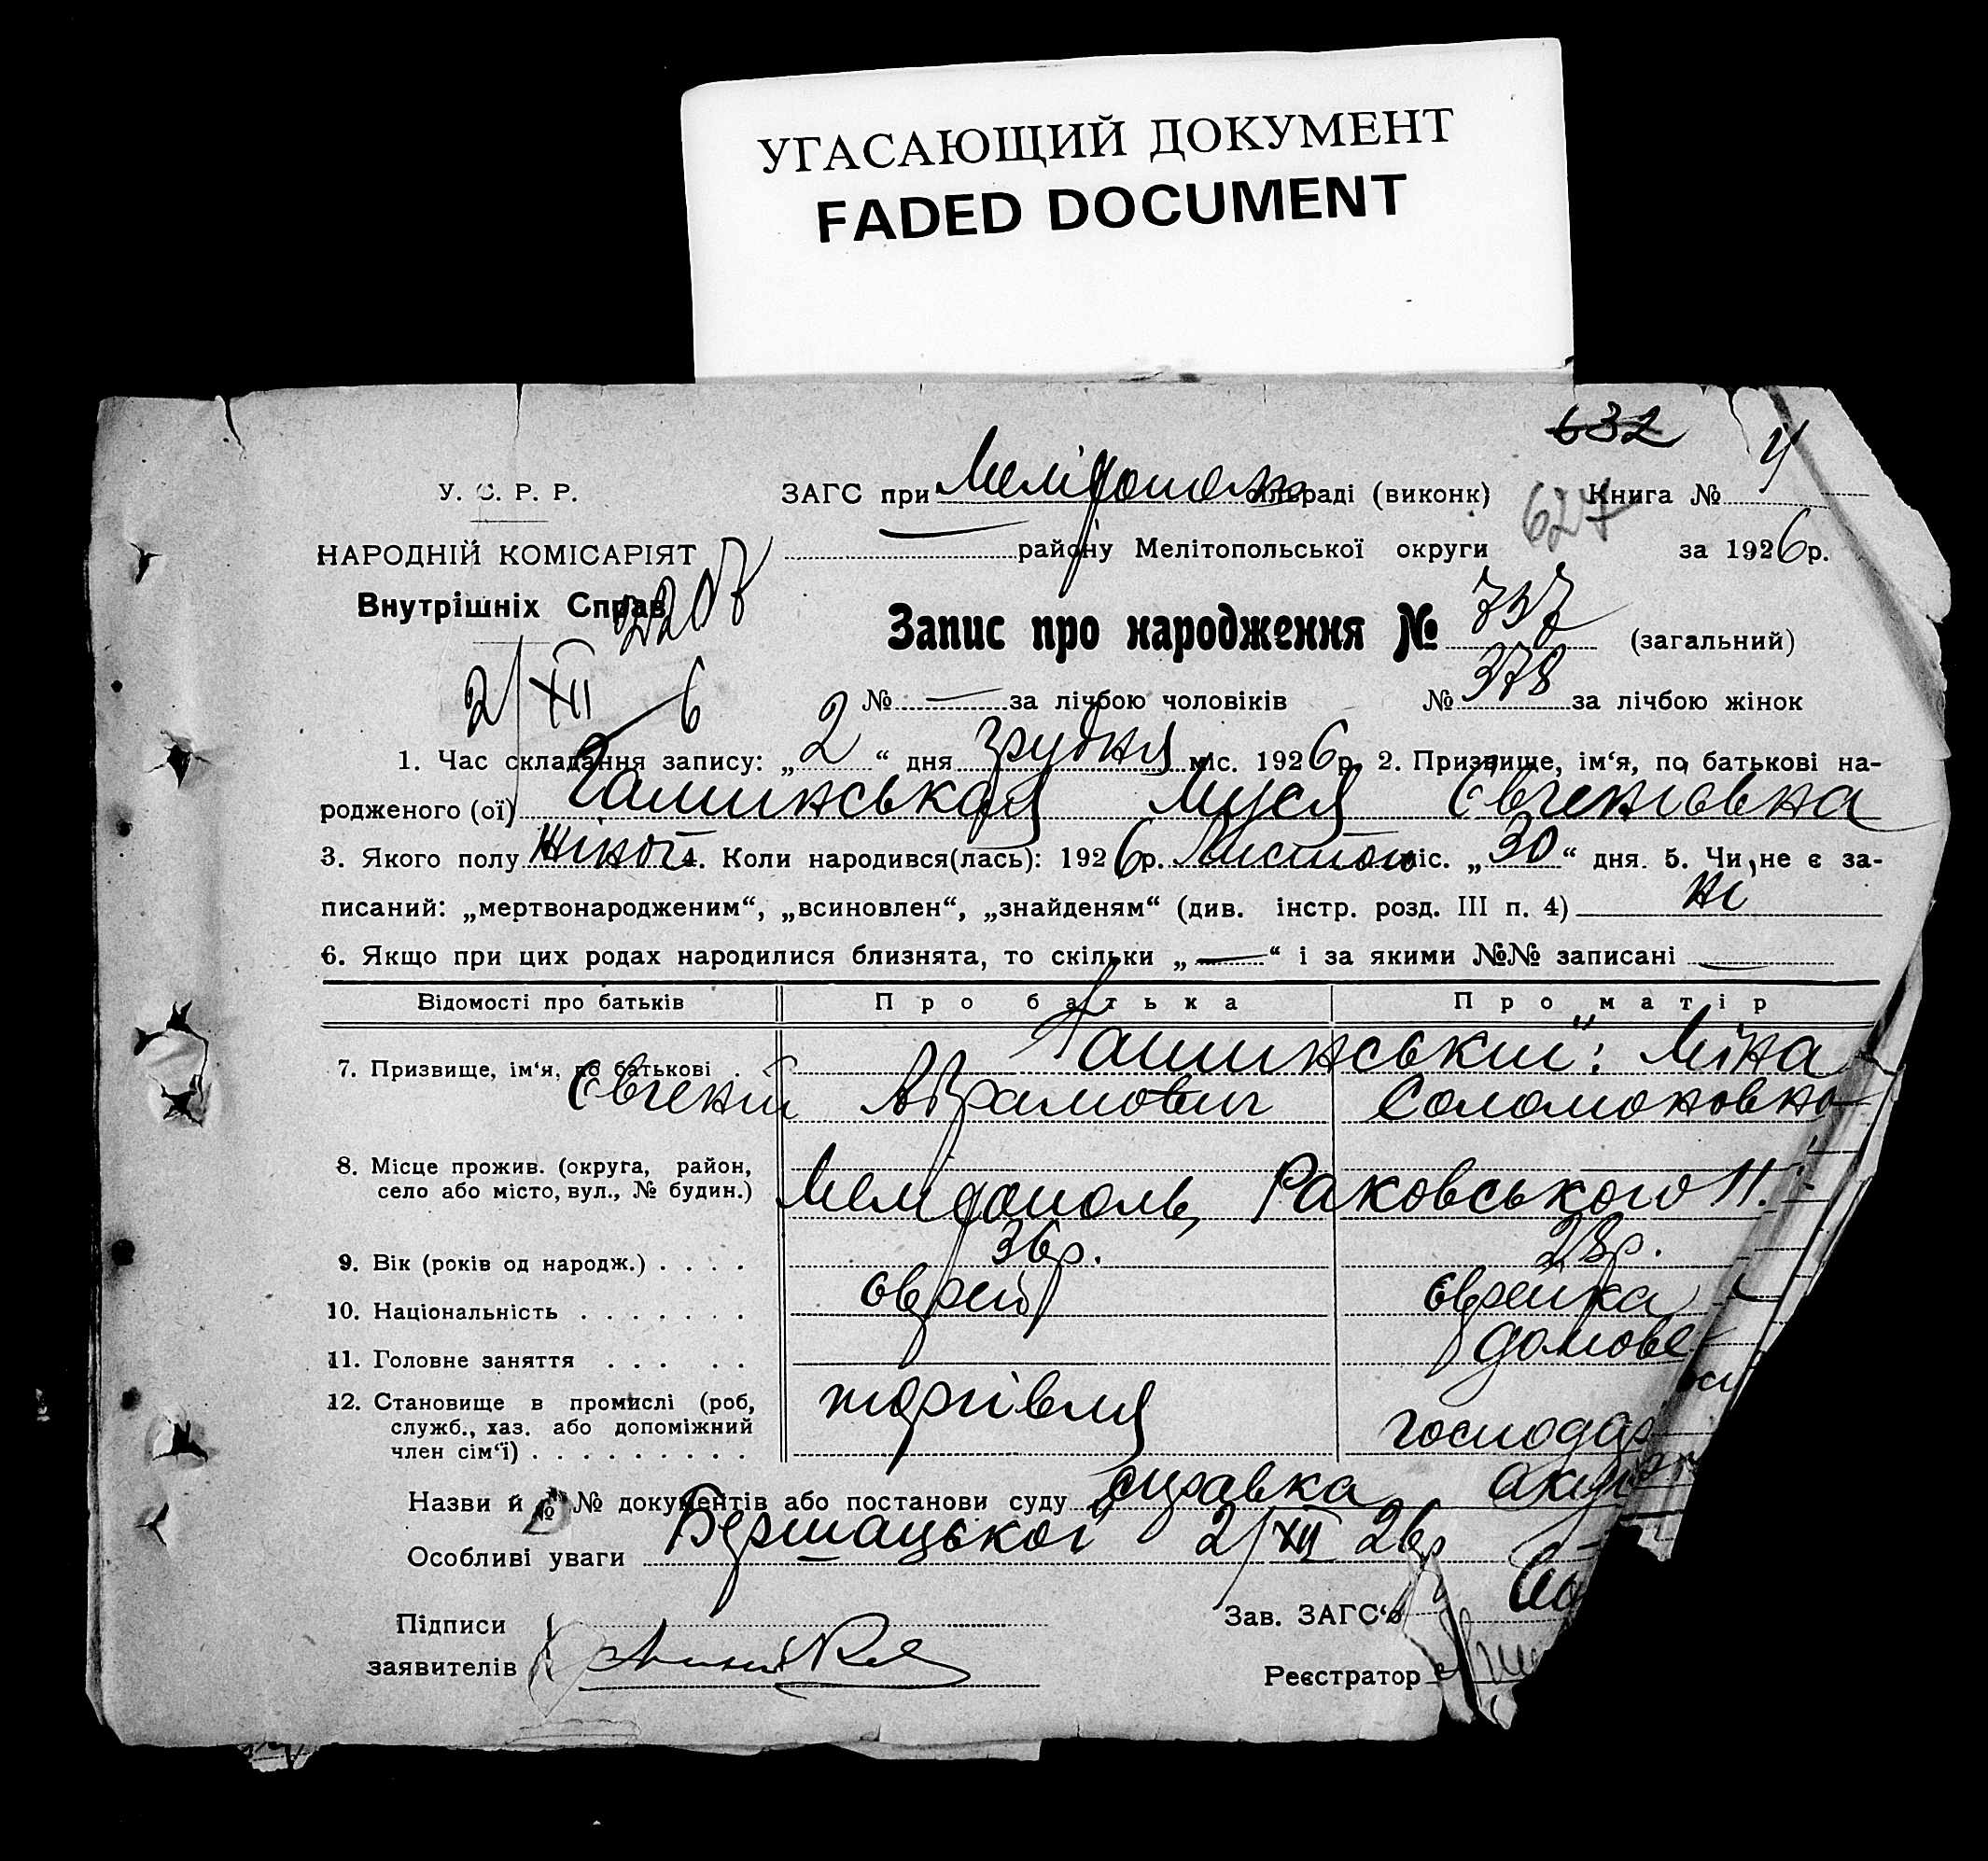 УГАСАЮЩИЙ ДОКУМЕНТ
FADED DOCUMENT
632
У. С. Р. Р. ЗАГС при Мелітополь сільраді (виконк) 627 Книга № 4
НАРОДНІЙ КОМІСАРІЯТ району Мелітопольської округи за 1926р.
Внутрішніх Справ 2208
Запис про народження № 737 (загальний)
2/XII 6 № — за лічбою чоловіків № 378 за лічбою жінок
1. Час складання запису: „2“ дня грудня міс. 1926р. 2. Призвище, ім‘я, по батькові на-
родженого (ої) Муся Євгеніовна
3. Якого полу жіноч 4. Коли народився(лась): 1926р. Листоп міс. „30“ дня. 5. Чи не є за-
писаний: „мертвонародженим“, „всиновлен“, „знайденям“ (див. інстр. розд. III п. 4) ні
6. Якщо при цих родах народилися близнята, то скільки „—“ і за якими №№ записані —
Відомості про батьків Про батька Про матір
7. Призвище, ім‘я, по батькові . Міна
Євгеній Абрамович Соломоновна
8. Місце прожив. (округа, район,
село або місто, вул., № будин.) Мелітополь, Раковського 11.
9. Вік (років од народж.) . . . . 36р. 28р.
10. Національність . . . . . . . єврей єврейка
11. Головне заняття . . . . . домове
12. Становище в промислі (роб, торгівля
служб., хаз. або допоміжний господар
член сім‘ї) . . . . . . . . .
Назви й №№ документів або постанови суду справка акуш
Особливі уваги Бершацької 2/XII 26р
Підписи Зав. ЗАГС‘о
заявителів Реєстратор